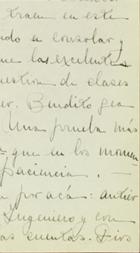 tram en este
do a consolar y
ue las
uestion de clases
er. Bendito sea
Una prueba más
que en los momen
paciencia. —
a por acá: antier
Ingeniero y con
as cuentas. Dios